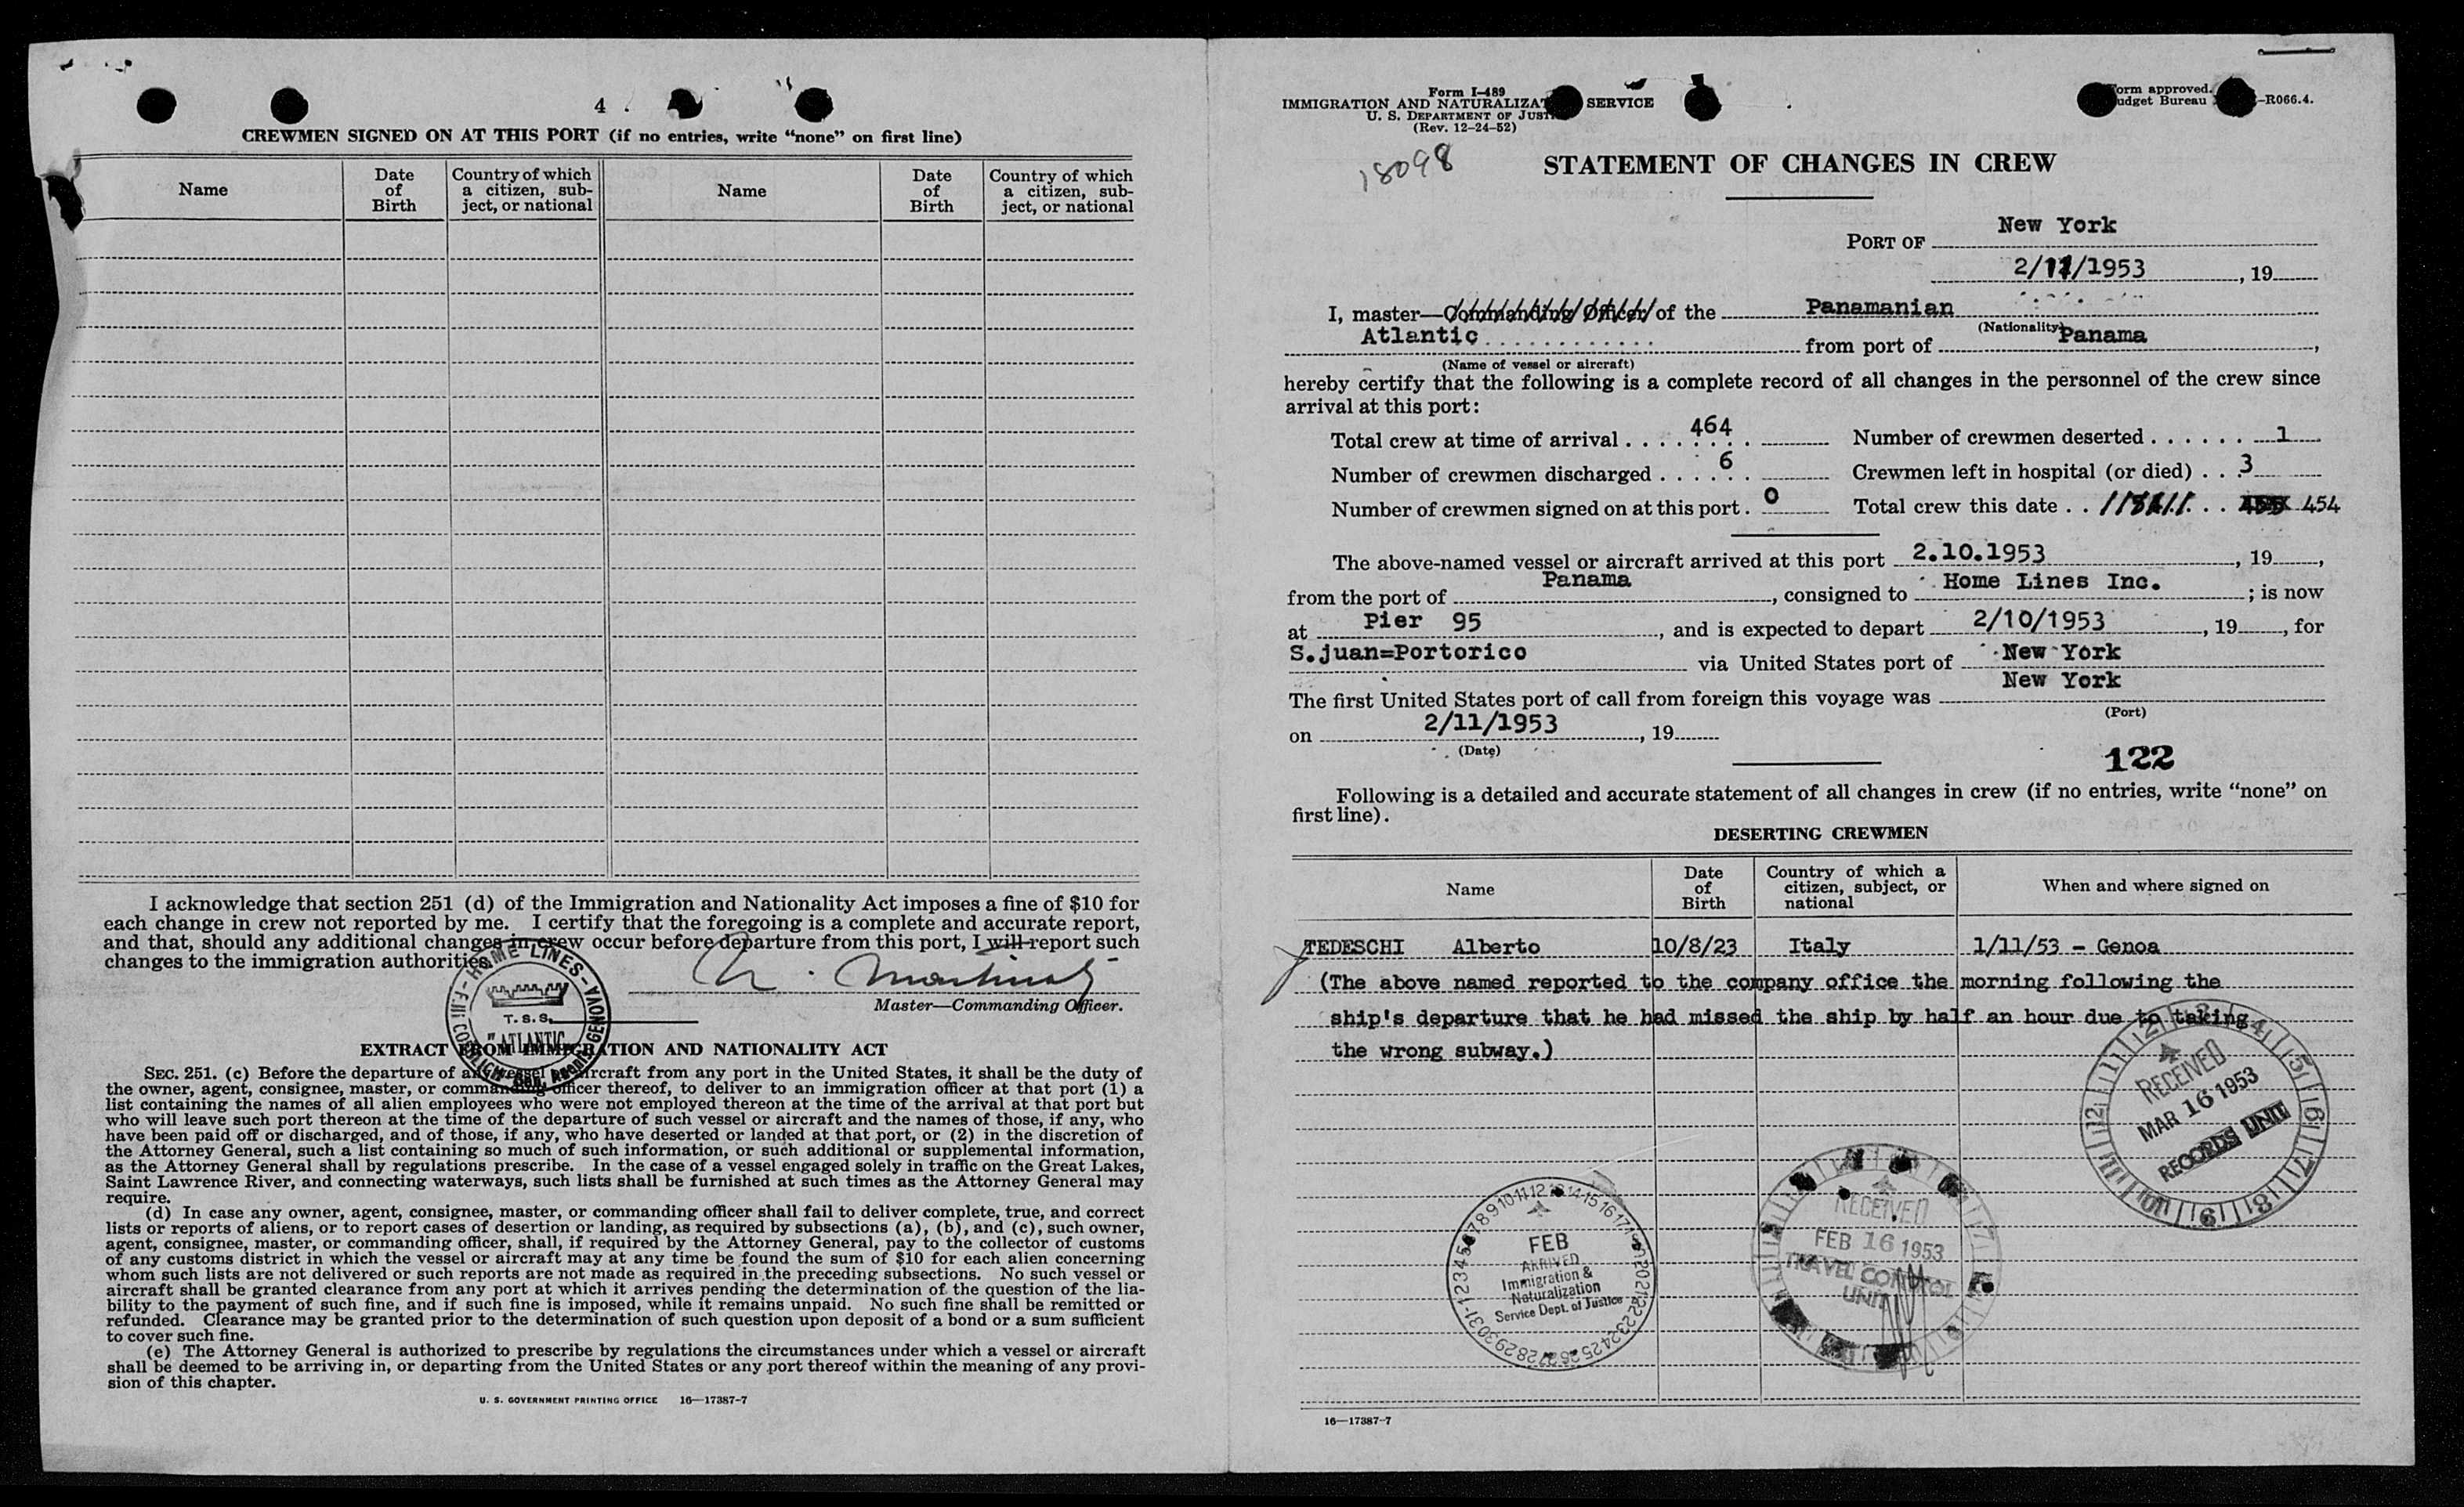 4
CREWMEN SIGNED ON AT THIS PORT (if no entries, write “none” on first line)
Name
Date of Birth
Country of which a citizen, subject, or national
Name
Date of Birth
Country of which a citizen, subject, or national
I acknowledge that section 251 (d) of the Immigration and Nationality Act imposes a fine of $10 for
each change in crew not reported by me. I certify that the foregoing is a complete and accurate report,
and that, should any additional changes in crew occur before departure from this port, I will report such
changes to the immigration authorities.
HOME LINES - GENOVA
T. S. S.
"ATLANTIC"
Master—Commanding Officer.
EXTRACT FROM IMMIGRATION AND NATIONALITY ACT
SEC. 251. (c) Before the departure of any vessel or aircraft from any port in the United States, it shall be the duty of
the owner, agent, consignee, master, or commanding officer thereof, to deliver to an immigration officer at that port (1) a
list containing the names of all alien employees who were not employed thereon at the time of the arrival at that port but
who will leave such port thereon at the time of the departure of such vessel or aircraft and the names of those, if any, who
have been paid off or discharged, and of those, if any, who have deserted or landed at that port, or (2) in the discretion of
the Attorney General, such a list containing so much of such information, or such additional or supplemental information,
as the Attorney General shall by regulations prescribe. In the case of a vessel engaged solely in traffic on the Great Lakes,
Saint Lawrence River, and connecting waterways, such lists shall be furnished at such times as the Attorney General may
require.
(d) In case any owner, agent, consignee, master, or commanding officer shall fail to deliver complete, true, and correct
lists or reports of aliens, or to report cases of desertion or landing, as required by subsections (a), (b), and (c), such owner,
agent, consignee, master, or commanding officer, shall, if required by the Attorney General, pay to the collector of customs
of any customs district in which the vessel or aircraft may at any time be found the sum of $10 for each alien concerning
whom such lists are not delivered or such reports are not made as required in the preceding subsections. No such vessel or
aircraft shall be granted clearance from any port at which it arrives pending the determination of the question of the lia-
bility to the payment of such fine, and if such fine is imposed, while it remains unpaid. No such fine shall be remitted or
refunded. Clearance may be granted prior to the determination of such question upon deposit of a bond or a sum sufficient
to cover such fine.
(e) The Attorney General is authorized to prescribe by regulations the circumstances under which a vessel or aircraft
shall be deemed to be arriving in, or departing from the United States or any port thereof within the meaning of any provi-
sion of this chapter.
U. S. GOVERNMENT PRINTING OFFICE 16—17387-7
Form I-489
IMMIGRATION AND NATURALIZAT SERVICE
U. S. DEPARTMENT OF JUST
(Rev. 12-24-52)
orm approved.
udget Bureau -R066.4.
18098
STATEMENT OF CHANGES IN CREW
PORT OF New York
2/11/1953, 19
I, master—Commanding Officer of the Panamanian
(Nationality)
Atlantic from port of Panama,
(Name of vessel or aircraft)
hereby certify that the following is a complete record of all changes in the personnel of the crew since
arrival at this port:
Total crew at time of arrival 464 Number of crewmen deserted 1
Number of crewmen discharged 6 Crewmen left in hospital (or died) 3
Number of crewmen signed on at this port. 0 Total crew this date 454
The above-named vessel or aircraft arrived at this port 2.10.1953, 19,
from the port of Panama, consigned to Home Lines Inc.; is now
at Pier 95, and is expected to depart 2/10/1953, 19, for
S.juan=Portorico via United States port of New York
The first United States port of call from foreign this voyage was New York
(Port)
on 2/11/1953, 19
(Date)
122
Following is a detailed and accurate statement of all changes in crew (if no entries, write “none” on
first line).
DESERTING CREWMEN
Name
Date of Birth
Country of which a citizen, subject, or national
When and where signed on
TEDESCHI Alberto 10/8/23 Italy 1/11/53 - Genoa
(The above named reported to the company office the morning following the
ship's departure that he had missed the ship by half an hour due to taking
the wrong subway.)
RECEIVED
MAR 16 1953
RECORDS UNIT
FEB
ARRIVED
Immigration &
Naturalization
Service Dept. of Justice
RECEIVED
FEB 16 1953
TRAVEL CONTROL
UNIT
16—17387-7